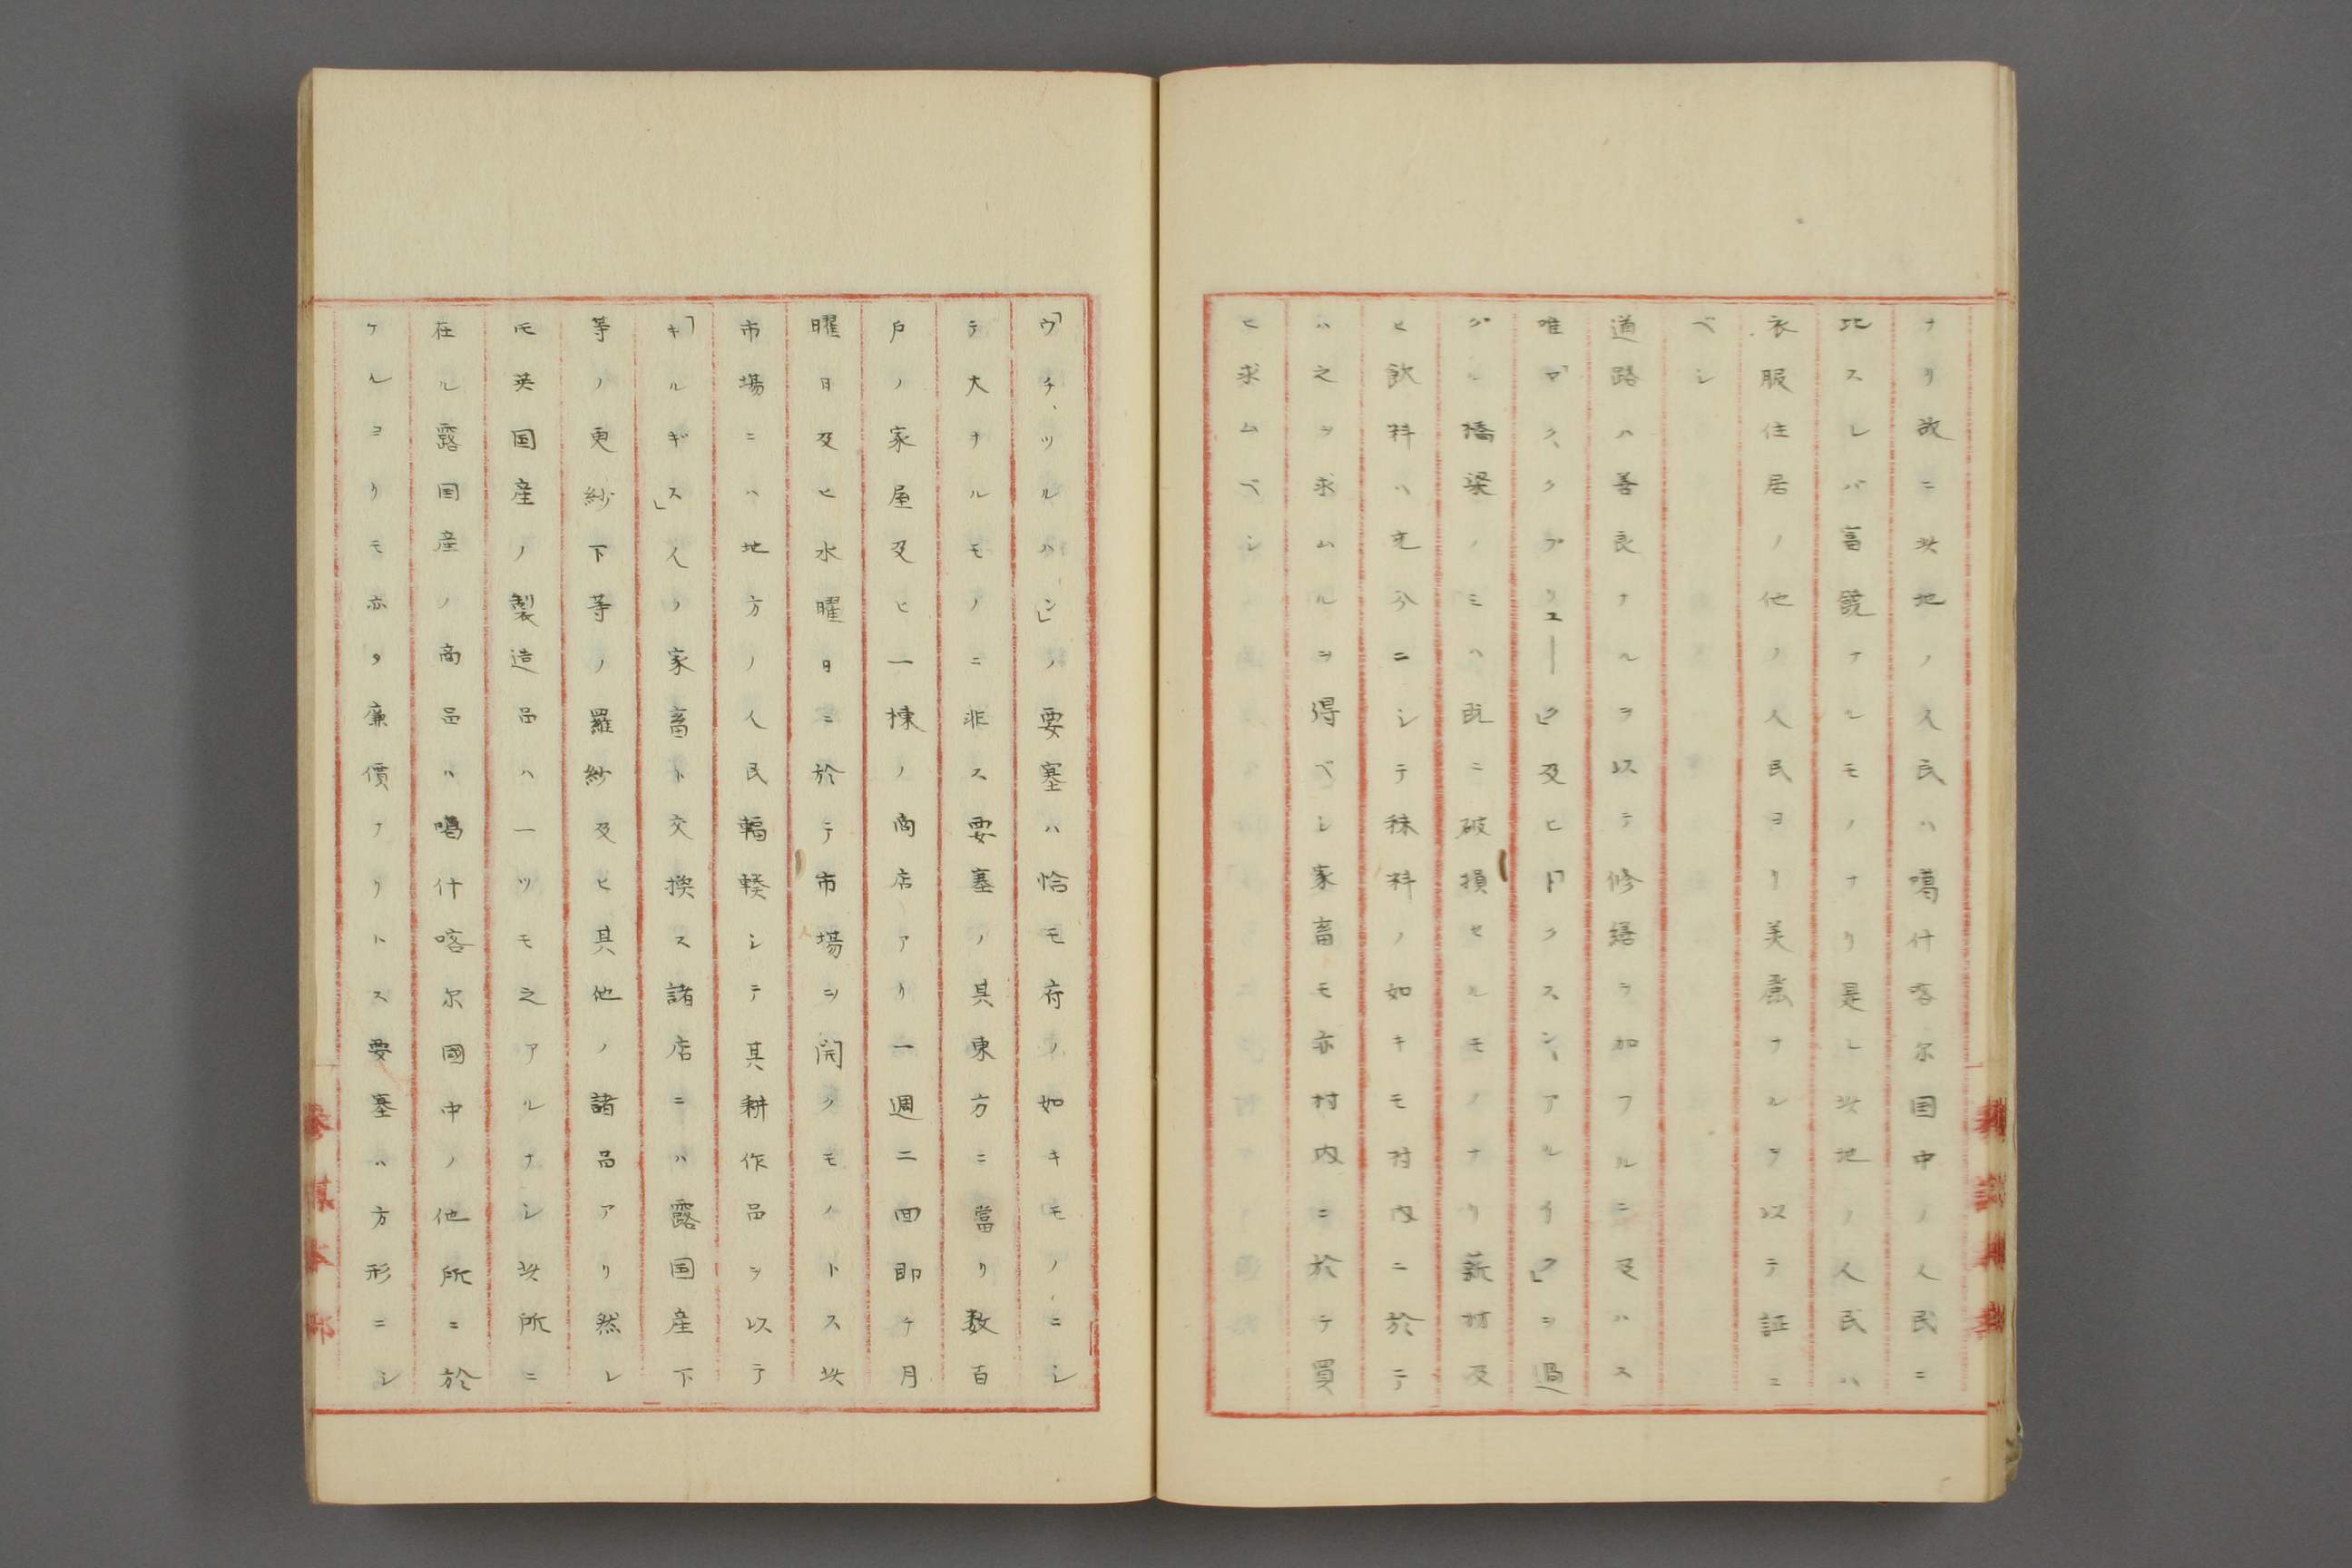 ナリ故ニ此地ノ人民ハ噶什喀尔国中ノ人民ニ
比スレバ富饒ナルモノナリ是レ此地ノ人民ハ
衣服住居ノ他ノ人民ヨリ美麗ナルヲ以テ証ニ
ベシ
道路ハ善良ナルヲ以テ修繕ヲ加フルニ及ハス
唯「マク、クブリユーク」及ヒ「トクスン、アルイク」ヲ過
グル橋梁ノミハ既ニ破損セルモノナリ薪材及
ヒ飲料ハ充分ニシテ秣料ノ如キモ村内ニ於テ
ハ之ヲ求ムルヲ得ベシ家畜モ亦村内ニ於テ買
ヒ求ムベシ
「ウチ、ツルハン」ノ要塞ハ恰モ府ノ如キモノニシ
テ大ナルモノニ非ス要塞ノ其東方ニ當リ数百
戸ノ家屋及ヒ一棟ノ商店アリ一週二回即チ月
曜日及ヒ水曜日ニ於テ市場ヲ開クモノトス此
市場ニハ地方ノ人民輻輳シテ其耕作品ヲ以テ
「キルギス」人ノ家畜ト交換ス諸店ニハ露国産下
等ノ更紗下等ノ羅紗及ヒ其他ノ諸品アリ然レ
𪜈英国産ノ製造品ハ一ツモ之アルナシ此所ニ
在ル露国産ノ商品ハ噶什喀尔國中ノ他所ニ於
ケルヨリモ亦タ廉價ナリトス要塞ハ方形ニシ
參謀本部